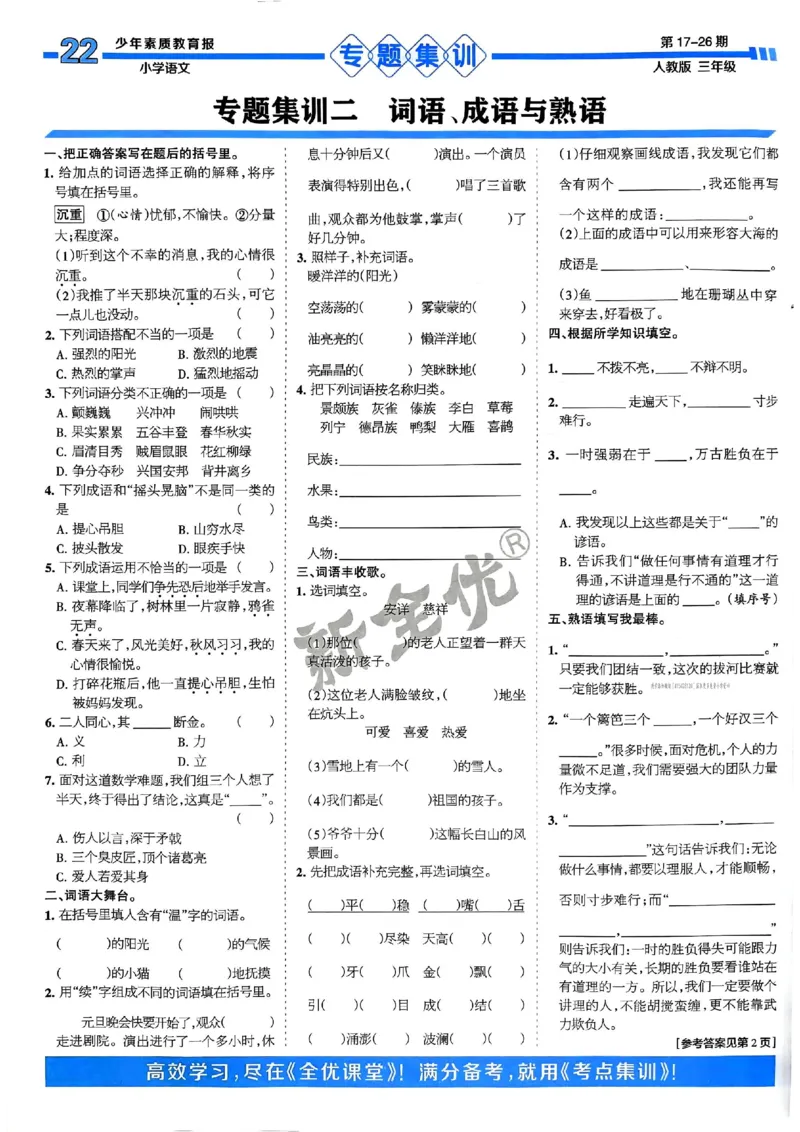 22 少年素质教育报
小学语文
专题集训
第17-26期
人教版 三年级
专题集训二 词语、成语与熟语
一、把正确答案写在题后的括号里。
1. 给加点的词语选择正确的解释,将序
号填在括号里。
沉重 ①(心情)忧郁,不愉快。②分量
大;程度深。
(1)听到这个不幸的消息,我的心情很
沉重。 ( )
(2)我推了半天那块沉重的石头,可它
一点儿也没动。 ( )
2. 下列词语搭配不当的一项是 ( )
A. 强烈的阳光 B. 激烈的地震
C. 热烈的掌声 D. 猛烈地摇动
3. 下列词语分类不正确的一项是 ( )
A. 颤巍巍 兴冲冲 闹哄哄
B. 果实累累 五谷丰登 春华秋实
C. 眉清目秀 贼眉鼠眼 花红柳绿
D. 争分夺秒 兴国安邦 背井离乡
4. 下列成语和“摇头晃脑”不是同一类的
是 ( )
A. 提心吊胆 B. 山穷水尽
C. 披头散发 D. 眼疾手快
5. 下列成语运用不恰当的一项是 ( )
A. 课堂上,同学们争先恐后地举手发言。
B. 夜幕降临了,树林里一片寂静,鸦雀
无声。
C. 春天来了,风光美好,秋风习习,我的
心情很愉悦。
D. 打碎花瓶后,他一直提心吊胆,生怕
被妈妈发现。
6. 二人同心,其______断金。 ( )
A. 义 B. 力
C. 利 D. 立
7. 面对这道数学难题,我们组三个人想了
半天,终于得出了结论,这真是“____”。
( )
A. 伤人以言,深于矛戟
B. 三个臭皮匠,顶个诸葛亮
C. 爱人若爱其身
二、词语大舞台。
1. 在括号里填入含有“温”字的词语。
( )的阳光 ( )的气候
( )的小猫 ( )地抚摸
2. 用“续”字组成不同的词语填在括号里。
元旦晚会快要开始了,观众( )
走进剧院。演出进行了一个多小时,休
息十分钟后又( )演出。一个演员
表演得特别出色,( )唱了三首歌
曲,观众都为他鼓掌,掌声( )了
好几分钟。
3. 照样子,补充词语。
暖洋洋的(阳光)
空荡荡的( ) 雾蒙蒙的( )
油亮亮的( ) 懒洋洋地( )
亮晶晶的( ) 笑眯眯地( )
4. 把下列词语按名称归类。
景颇族 灰雀 傣族 李白 草莓
列宁 德昂族 鸭梨 大雁 喜鹊
民族:____________
水果:____________
鸟类:____________
人物:____________
三、词语丰收歌。
1. 选词填空。
安详 慈祥
(1)那位( )的老人正望着一群天
真活泼的孩子。
(2)这位老人满脸皱纹,( )地坐
在炕头上。
可爱 喜爱 热爱
(3)雪地上有一个( )的雪人。
(4)我们都是( )祖国的孩子。
(5)爷爷十分( )这幅长白山的风
景画。
2. 先把成语补充完整,再选词填空。
( )平( )稳 ( )嘴( )舌
( )( )尽染 天高( )( )
( )牙( )爪 金( )飘( )
引( )( )目 成( )结( )
( )涌澎( ) 波澜( )( )
新全优®
(1)仔细观察画线成语,我发现它们都
含有两个____________,我还能再写
一个这样的成语:____________。
(2)上面的成语中可以用来形容大海的
成语是____________、____________。
(3)鱼____________地在珊瑚丛中穿
来穿去,好看极了。
四、根据所学知识填空。
1. _____不拨不亮,_____不辩不明。
2. __________走遍天下,__________寸步
难行。
3. 一时强弱在于_____,万古胜负在于
_____。
A. 我发现以上这些都是关于“_____”的
谚语。
B. 告诉我们“做任何事情有道理才行
得通,不讲道理是行不通的”这一道
理的谚语是上面的_____。(填序号)
五、熟语填写我最棒。
1. “____________,____________。”
只要我们团结一致,这次的拔河比赛就
一定能够获胜。
2. “一个篱笆三个______,一个好汉三个
______。”很多时候,面对危机,个人的力
量微不足道,我们需要强大的团队力量
作为支撑。
3. “____________,______
____________”这句话告诉我们:无论
做什么事情,都要以理服人,才能顺畅,
否则寸步难行;而“____________
________,____________”
则告诉我们:一时的胜负得失可能跟力
气的大小有关,长期的胜负要看谁站在
有道理的一方。所以,我们一定要做个
讲理的人,不能胡搅蛮缠,更不能靠武
力欺负人。
[参考答案见第2页]
高效学习,尽在《全优课堂》!满分备考,就用《考点集训》!